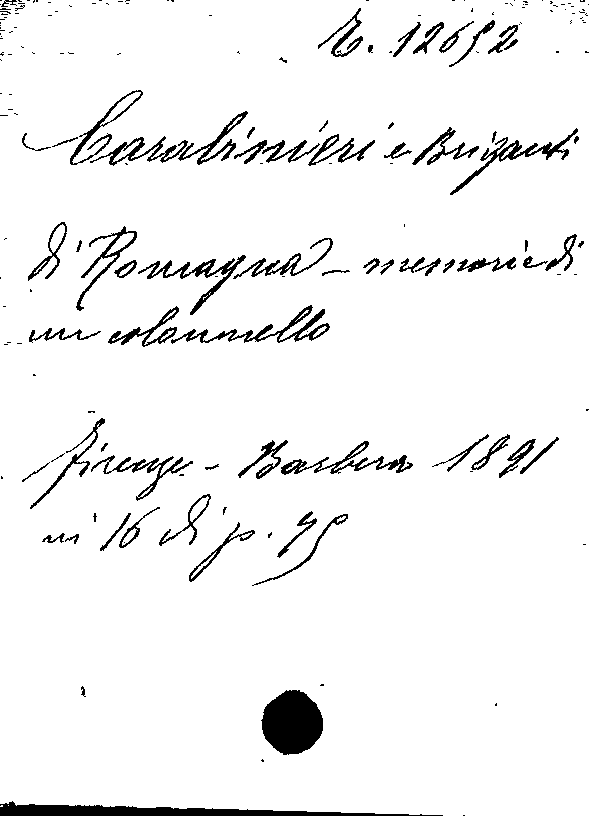 E. 12652
Carabinieri e Briganti
di Romagna - memorie di
un colonnello
Firenze - Barbera 1891
in 16 di p. 75